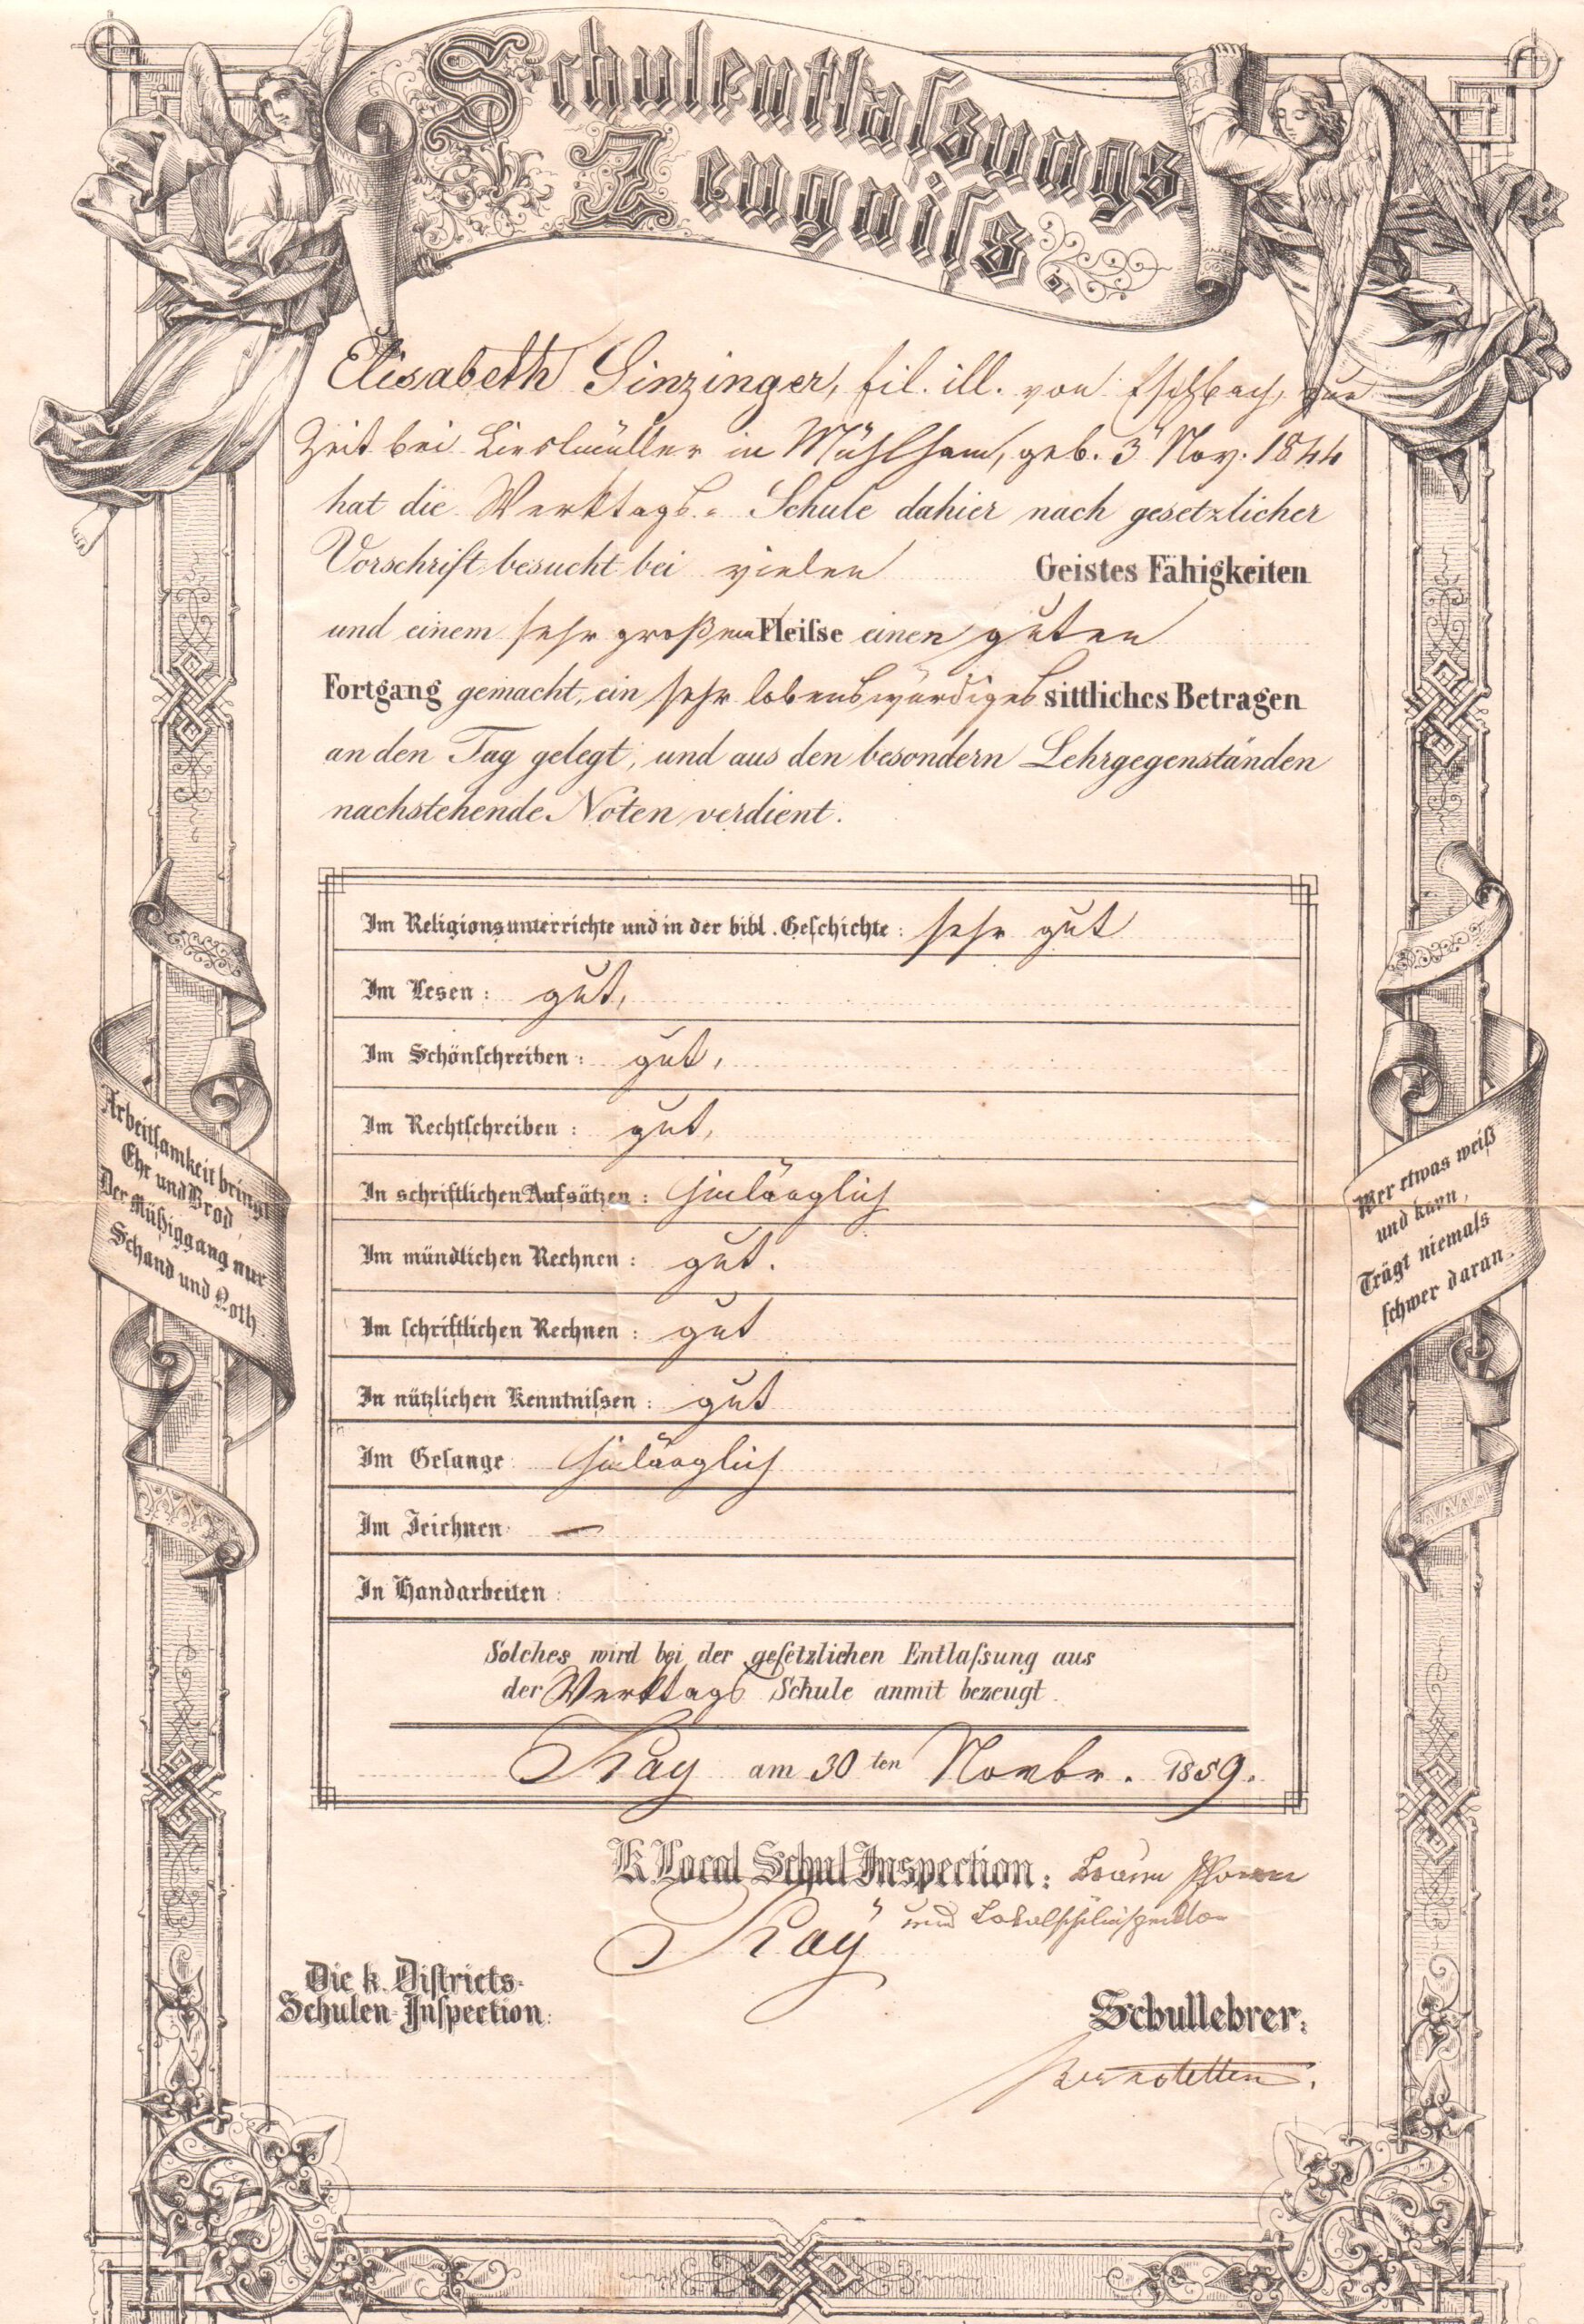 Schulentlaſsungs
Zeugniſs.
Elisabeth Sinzinger, fil. ill. von Eschbach, zur
Zeit bei Lieslmüller in Mühlham, geb. 3 Nov. 1844
hat die Werktags- Schule dahier nach gesetzlicher
Vorschrift besucht bei vielen Geistes Fähigkeiten
und einem sehr großen Fleiſse einen guten
Fortgang gemacht, ein sehr lobenswürdiges sittliches Betragen
an den Tag gelegt, und aus den besondern Lehrgegenständen
nachstehende Noten verdient.
Im Religionsunterrichte und in der bibl. Geſchichte: sehr gut
Im Lesen: gut,
Im Schönſchreiben: gut,
Im Rechtſchreiben: gut,
In schriftlichen Aufsätzen: hinlänglich
Im mündlichen Rechnen: gut.
Im ſchriftlichen Rechnen: gut
In nützlichen Kenntniſsen: gut
Im Geſange: hinlänglich
Im Zeichnen: —
In Handarbeiten:
Solches wird bei der geſetzlichen Entlaſsung aus
der Werktags Schule anmit bezeugt.
Kay am 30 ten Novbr. 1859.
K Local Schul Inspection: Pfarrer
Kay und Lokalschulinspektor
Die k. Diſtricts-
Schulen-Inſpection:
Schullehrer:
Arbeitſamkeit bringt
Ehr und Brod,
Der Müßiggang nur
Schand und Noth.
Wer etwas weiß
und kann,
Trägt niemals
ſchwer daran.